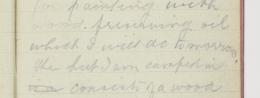 for painting with
wood preserving oil
which I will do tomorrow
the hut I am camped in
consists of a wood